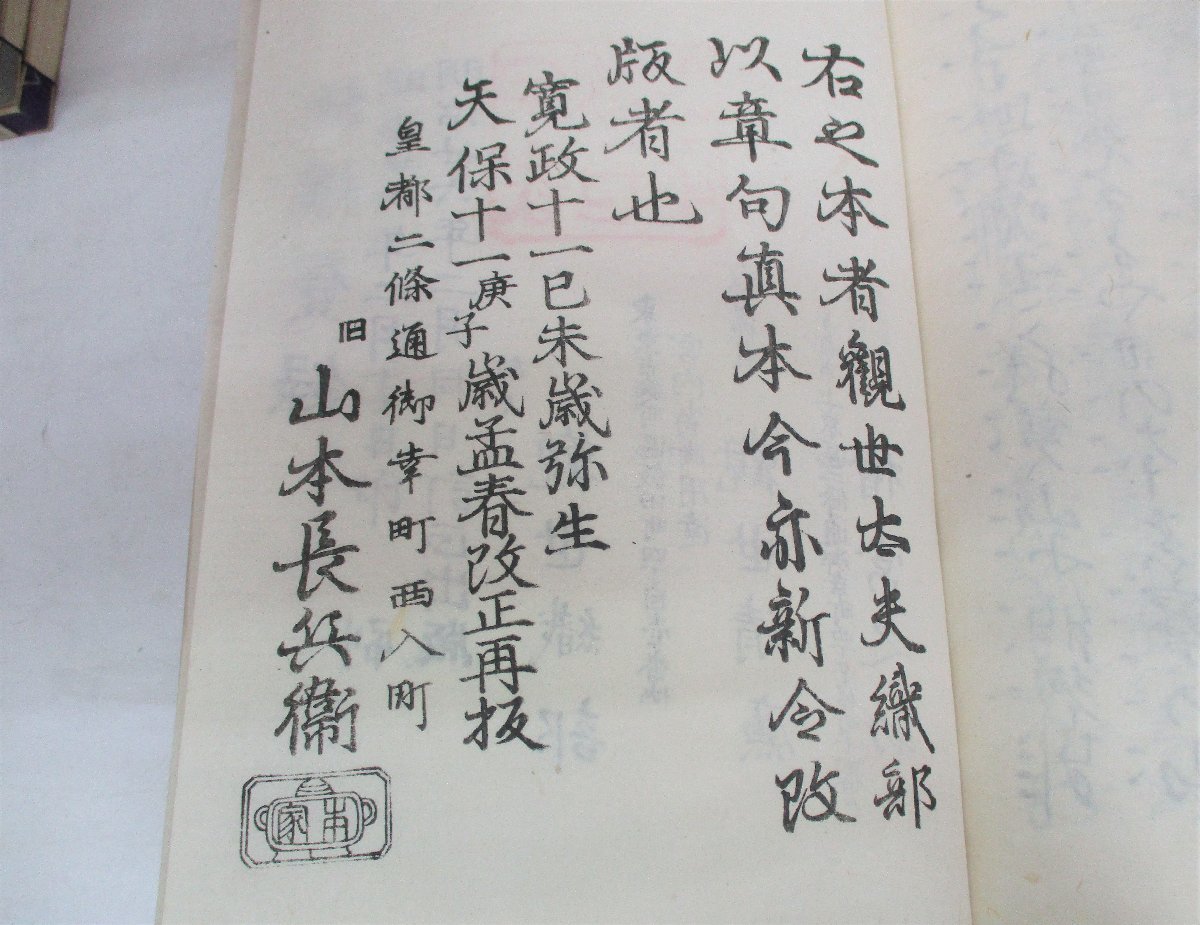 右之本者觀世太夫織部
以章句真本今亦新令改
版者也
寛政十一己未歳弥生
天保十一庚子歳孟春改正再板
皇都二條通御幸町西入町
旧 山本長兵衞
本家